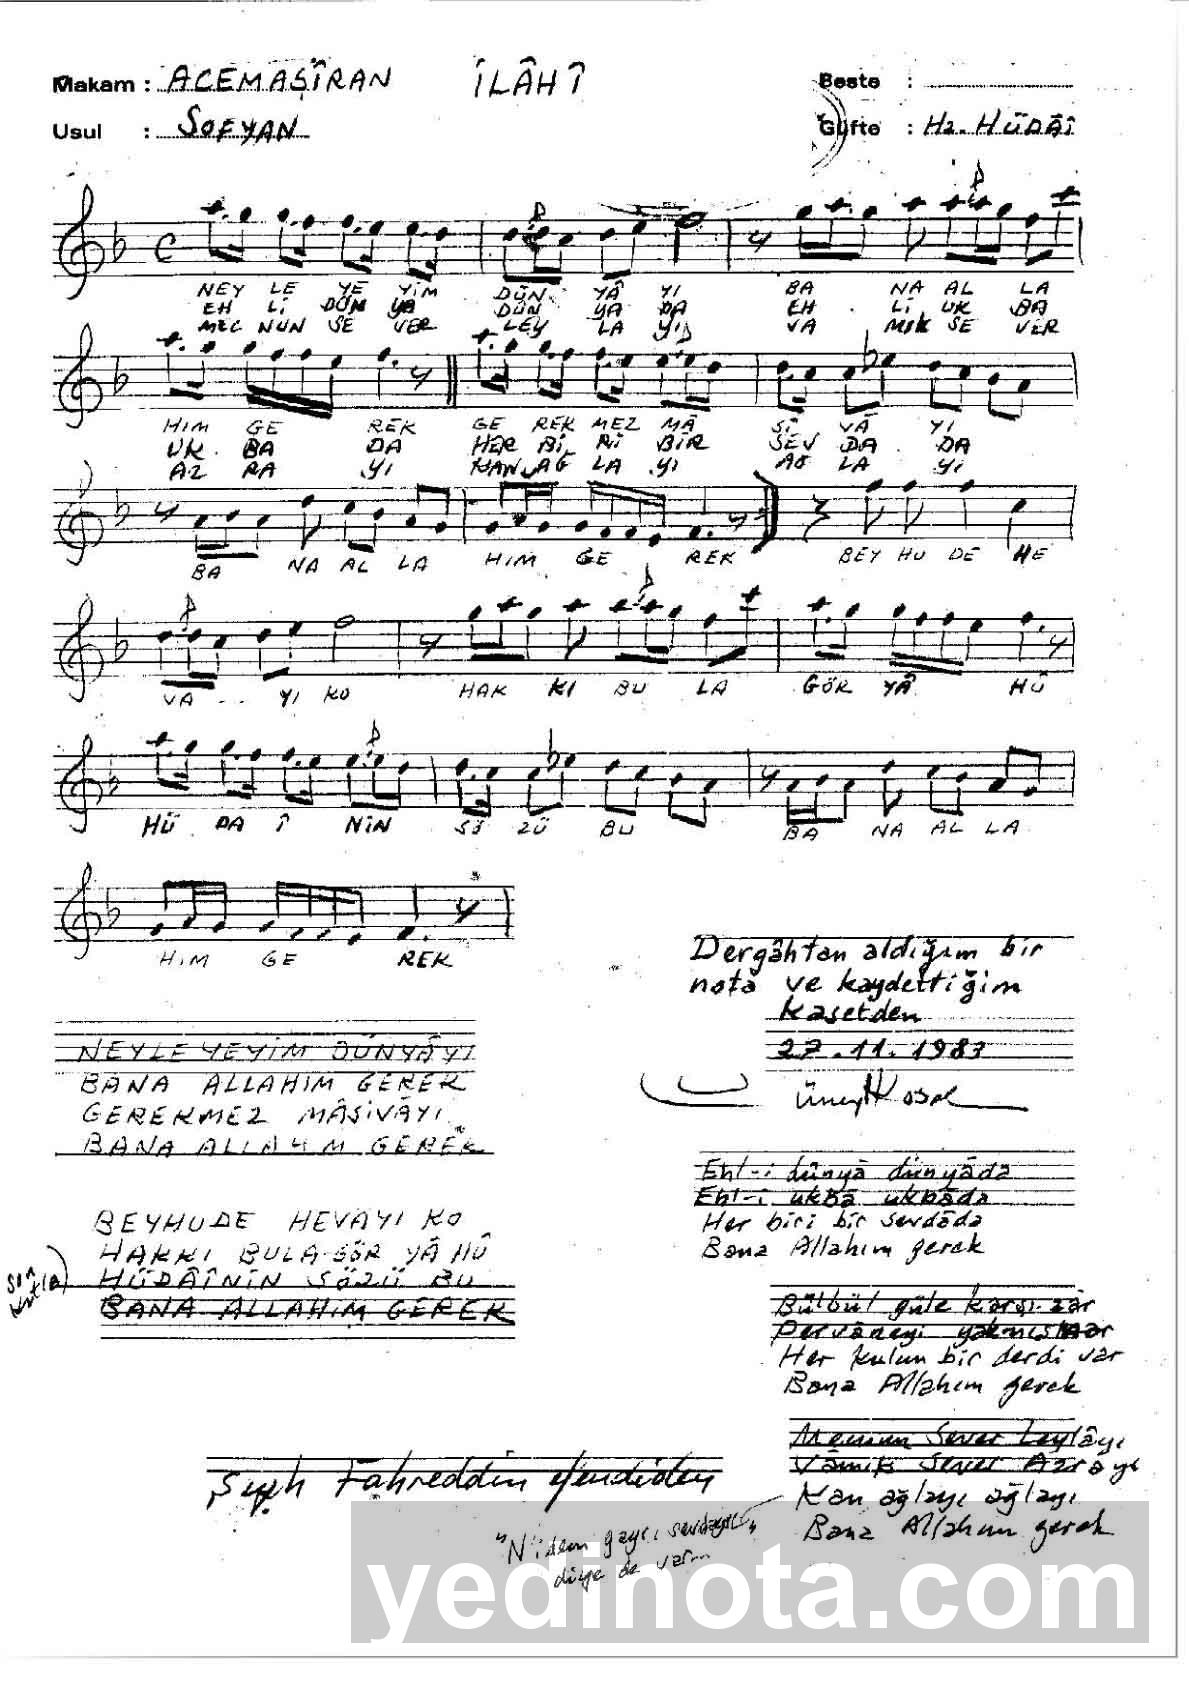 Makam : ACEMAŞÎRAN ÎLÂHÎ Beste :
Usul : SOFYAN Güfte : Hz. HÜDÂÎ
NEY LE YE YİM DÜN YÂ YI BA NA AL LA
EH Lİ DÜN YA DÜN YA DA EH Lİ UK BA
MEC NUN SE VER LEY LA YI VA MIK SE VER
HIM GE REK GE REK MEZ MÂ Sİ VÂ YI
UK BA DA HER Bİ Rİ BİR SEV DA DA
AZ RA YI KAN AĞ LA YI AĞ LA YI
BA NA AL LA HIM GE REK BEY HU DE HE
VA YI KO HAK KI BU LA GÖR YÂ HÛ
HÜ DA Î NİN SÖ ZÜ BU BA NA AL LA
HIM GE REK
Dergâhtan aldığım bir
nota ve kaydettiğim
kasetden
27.11.1983
NEYLEYEYİM DÜNYÂYI
BANA ALLAHIM GEREK
GEREKMEZ MÂSİVÂYI
BANA ALLAHIM GEREK
Ehl-i dünyâ dünyâda
Ehl-i ukbâ ukbâda
Her biri bir sevdâda
Bana Allahım gerek
BEYHUDE HEVAYI KO
HAKKI BULA GÖR YÂ HÛ
HÜDÂÎNİN SÖZÜ BU
BANA ALLAHIM GEREK
Bülbül güle karşı zâr
Pervâneyi yakmış nar
Her kulun bir derdi var
Bana Allahım gerek
Mecnun Sever Leylâyı
Vâmık Sever Azrâyı
Kan ağlayı ağlayı
Bana Allahım gerek
Şeyh Fahreddin efendiden
"N'idem gayri sevdayı"
diye de var
yedinota.com